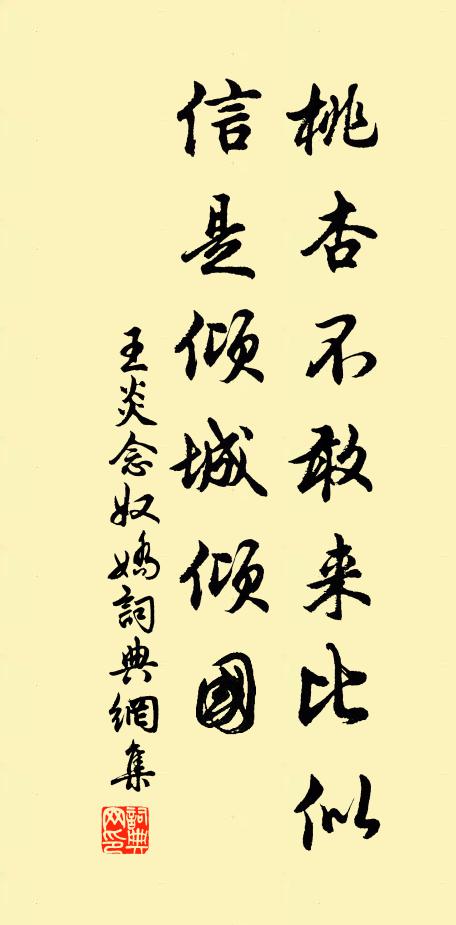 桃杏不敢来比似
信是倾城倾國
王炎念奴嬌詞典網集
詞典网印